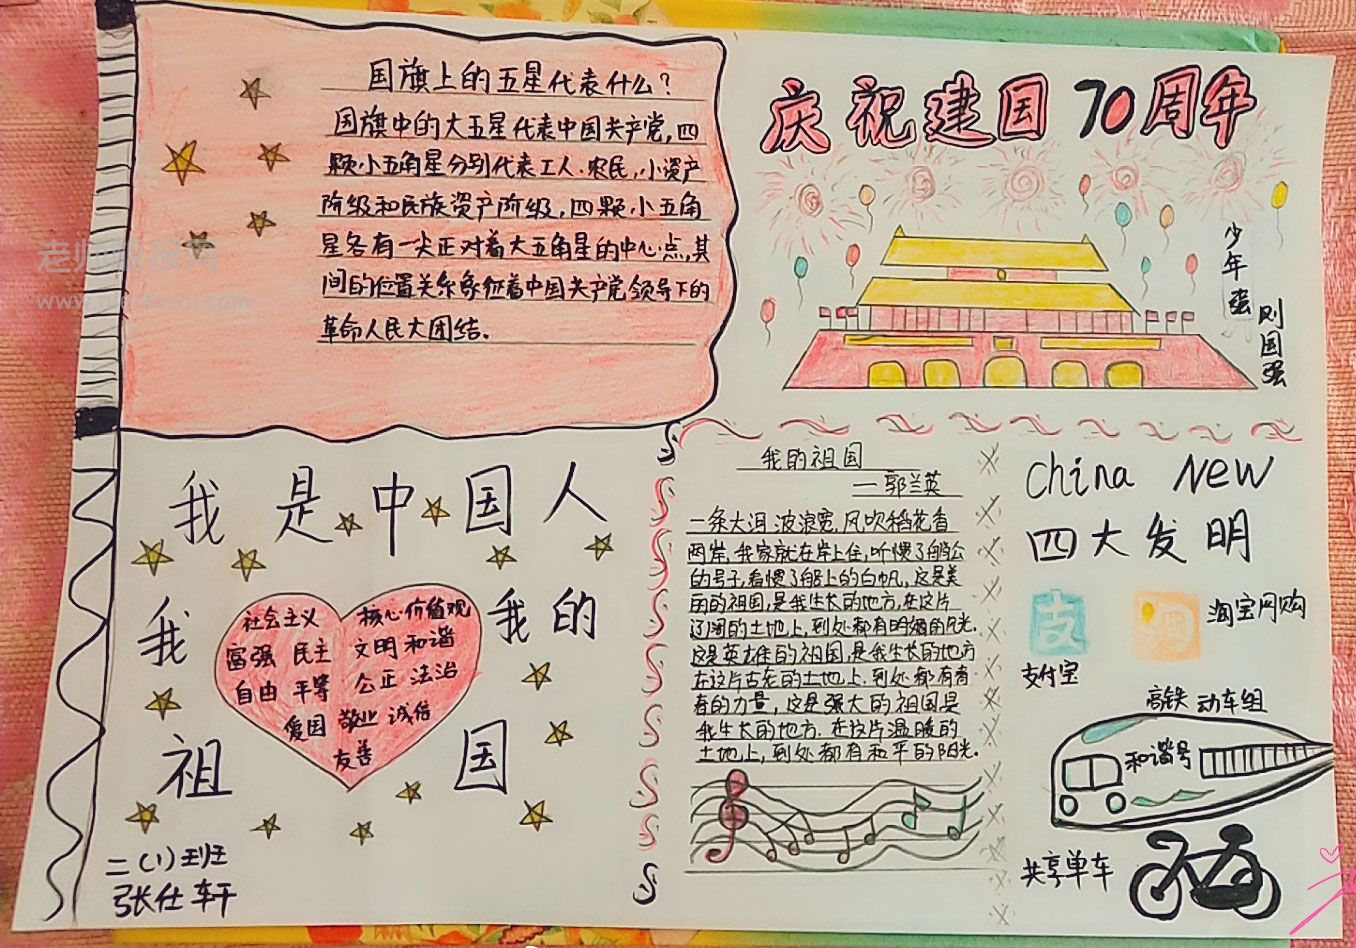 国旗上的五星代表什么?
国旗中的大五星代表中国共产党,四
颗小五角星分别代表工人、农民,小资产
阶级和民族资产阶级,四颗小五角
星各有一尖正对着大五角星的中心点,其
间的位置关系象征着中国共产党领导下的
革命人民大团结.
庆祝建国70周年
少年强
则国强
我是中国人
我 我的
祖 国
社会主义 核心价值观
富强 民主 文明 和谐
自由 平等 公正 法治
爱国 敬业 诚信
友善
二(1)班
张仕轩
我的祖国
一郭兰英
一条大河 波浪宽,风吹稻花香
两岸,我家就在岸上住,听惯了艄公
的号子,看惯了船上的白帆,这是美
丽的祖国,是我生长的地方,在这片
辽阔的土地上,到处都有明媚的风光.
这是英雄的祖国,是我生长的地方
在这片古老的土地上.到处都有青
春的力量,这是强大的祖国是
我生长的地方.在这片温暖的
土地上,到处都有和平的阳光.
China New
四大发明
支
淘
淘宝网购
支付宝
高铁 动车组
和谐号
共享单车